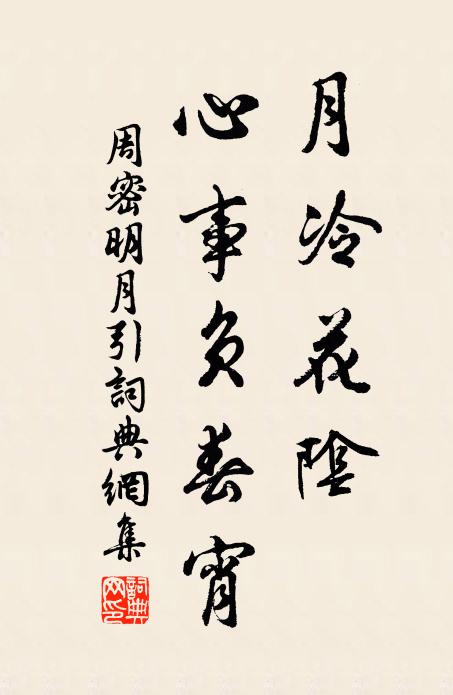 月冷花陰
心事負春宵
周密明月引詞典網集
詞典网印